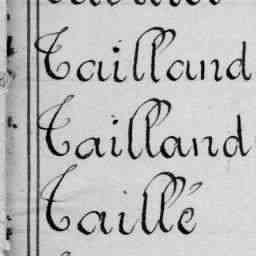 Tailland
Tailland
Taillé